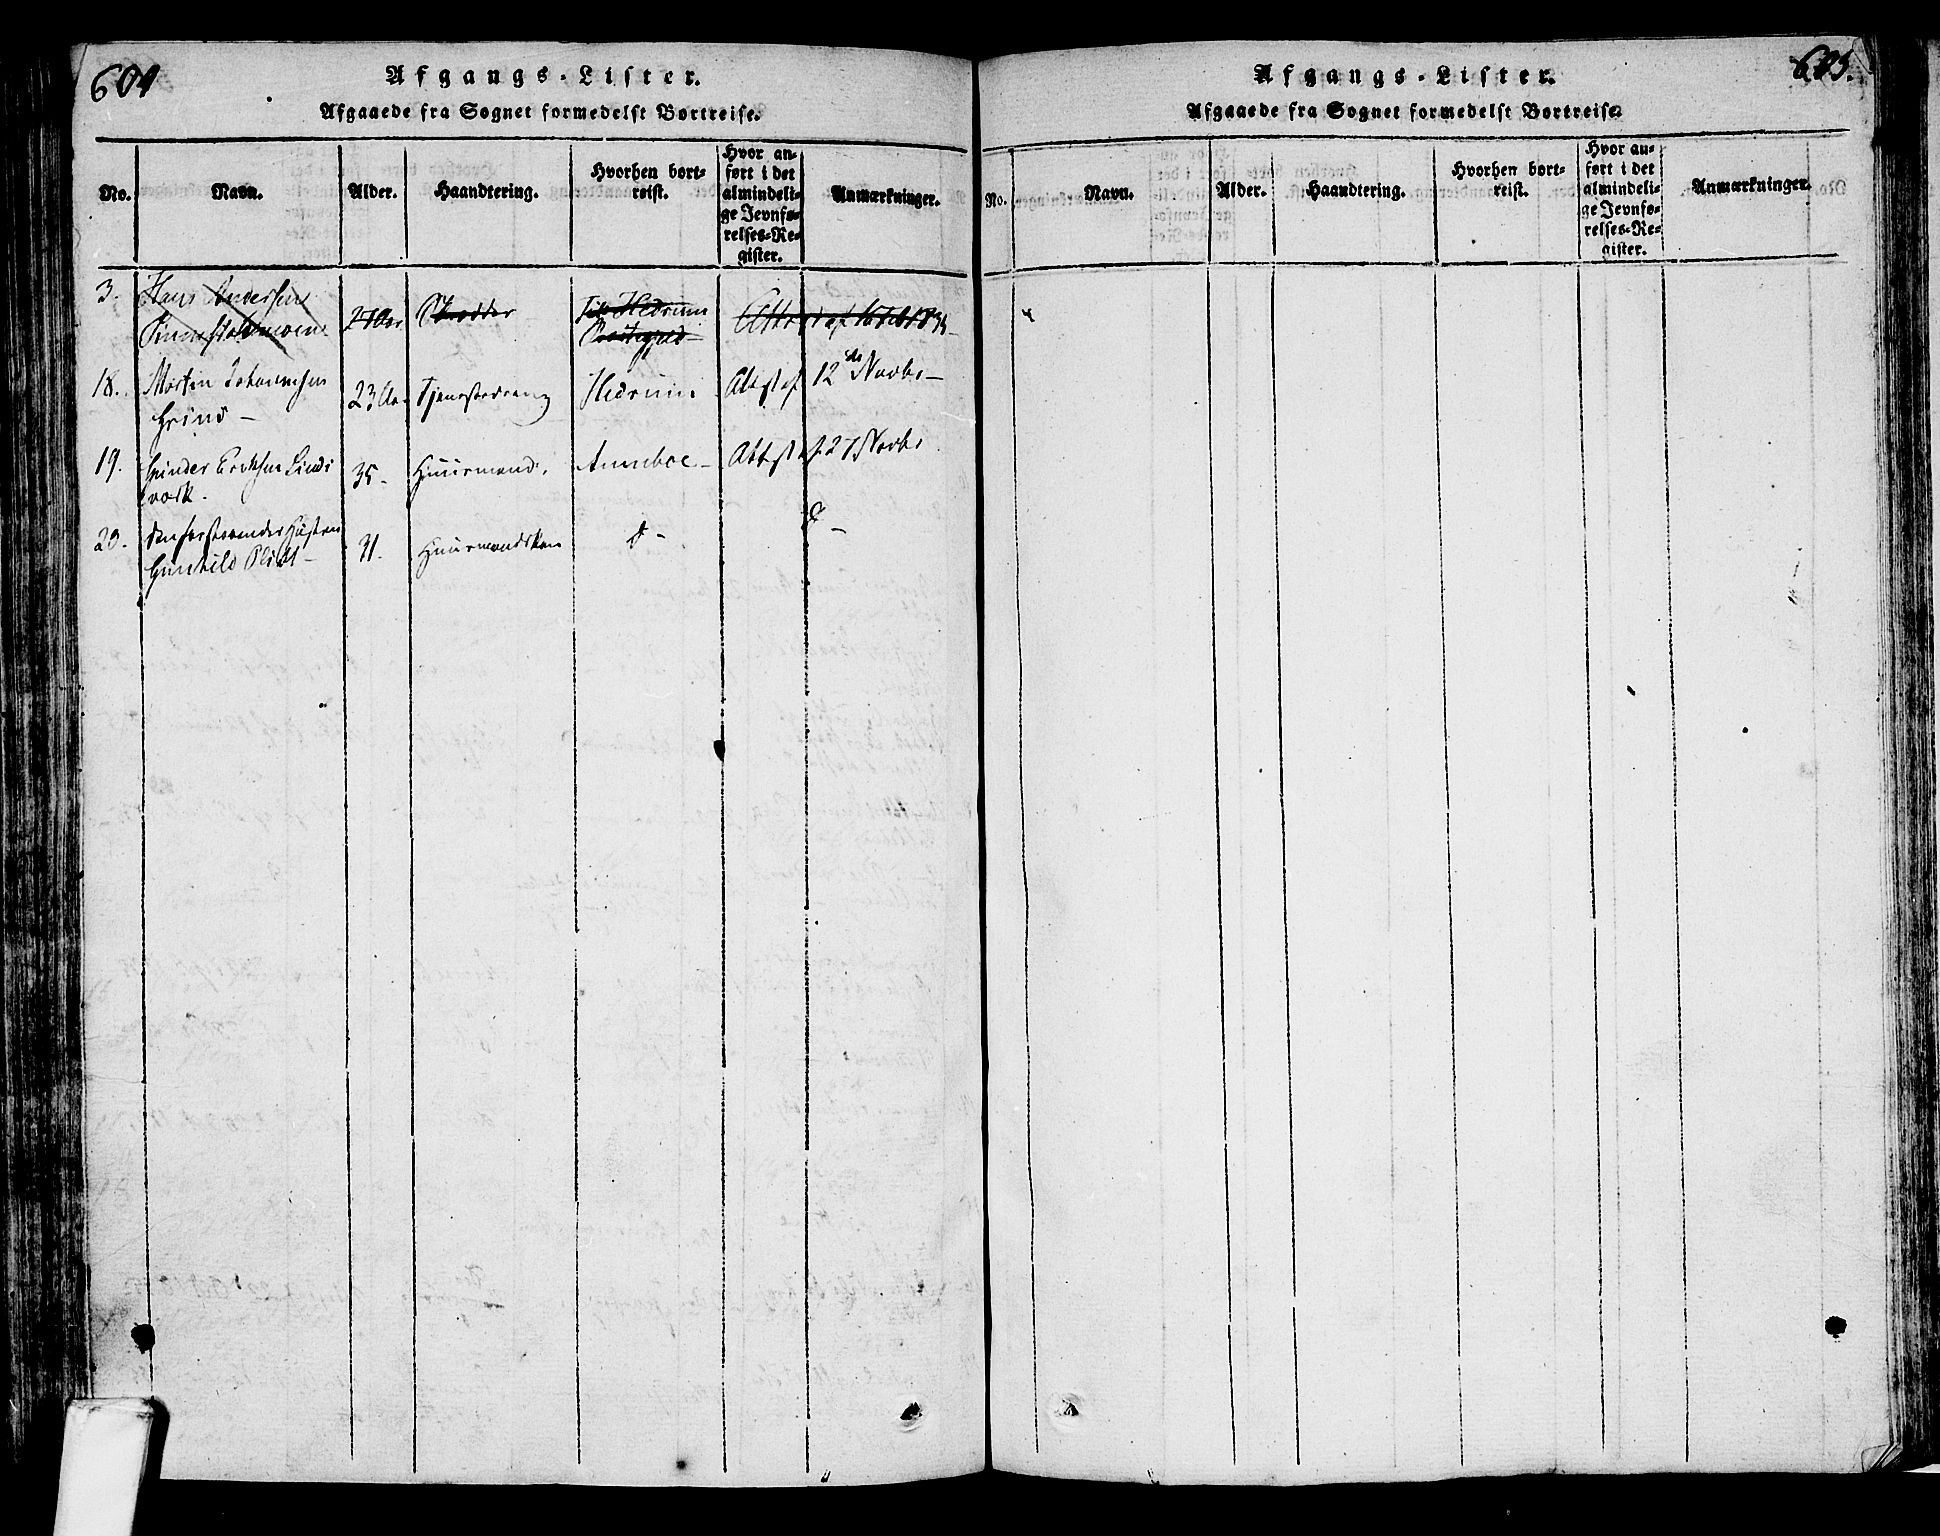 604
Afgangs-Lister.
Afgaaede fra Sognet formedelst Bortreise.
No.
Navn.
Alder.
Haandtering.
Hvorhen bort-
reist.
Hvor an-
ført i det
almindeli-
ge Jevnfø-
relses-Re-
gister.
Anmærkninger.
3. Hans Andersen
27 Aar Skrædder Til Hedrum
Præstegjeld
18. Martin Johannesen
Grind – 23 Aar Tjenestedreng Hedrum Attest af 12 Novbr –
19. Gunder Eriksen Linds
værk. 35 – Huusmand. Anneboe – Attest af 27 Novbr
20. denforestaaendes Hustru
Gunhild – 31. Huusmandskone d – d –
605.
Afgangs-Lister.
Afgaaede fra Sognet formedelst Bortreise.
No.
Navn.
Alder.
Haandtering.
Hvorhen bort-
reist.
Hvor an-
ført i det
almindeli-
ge Jevnfø-
relses-Re-
gister.
Anmærkninger.